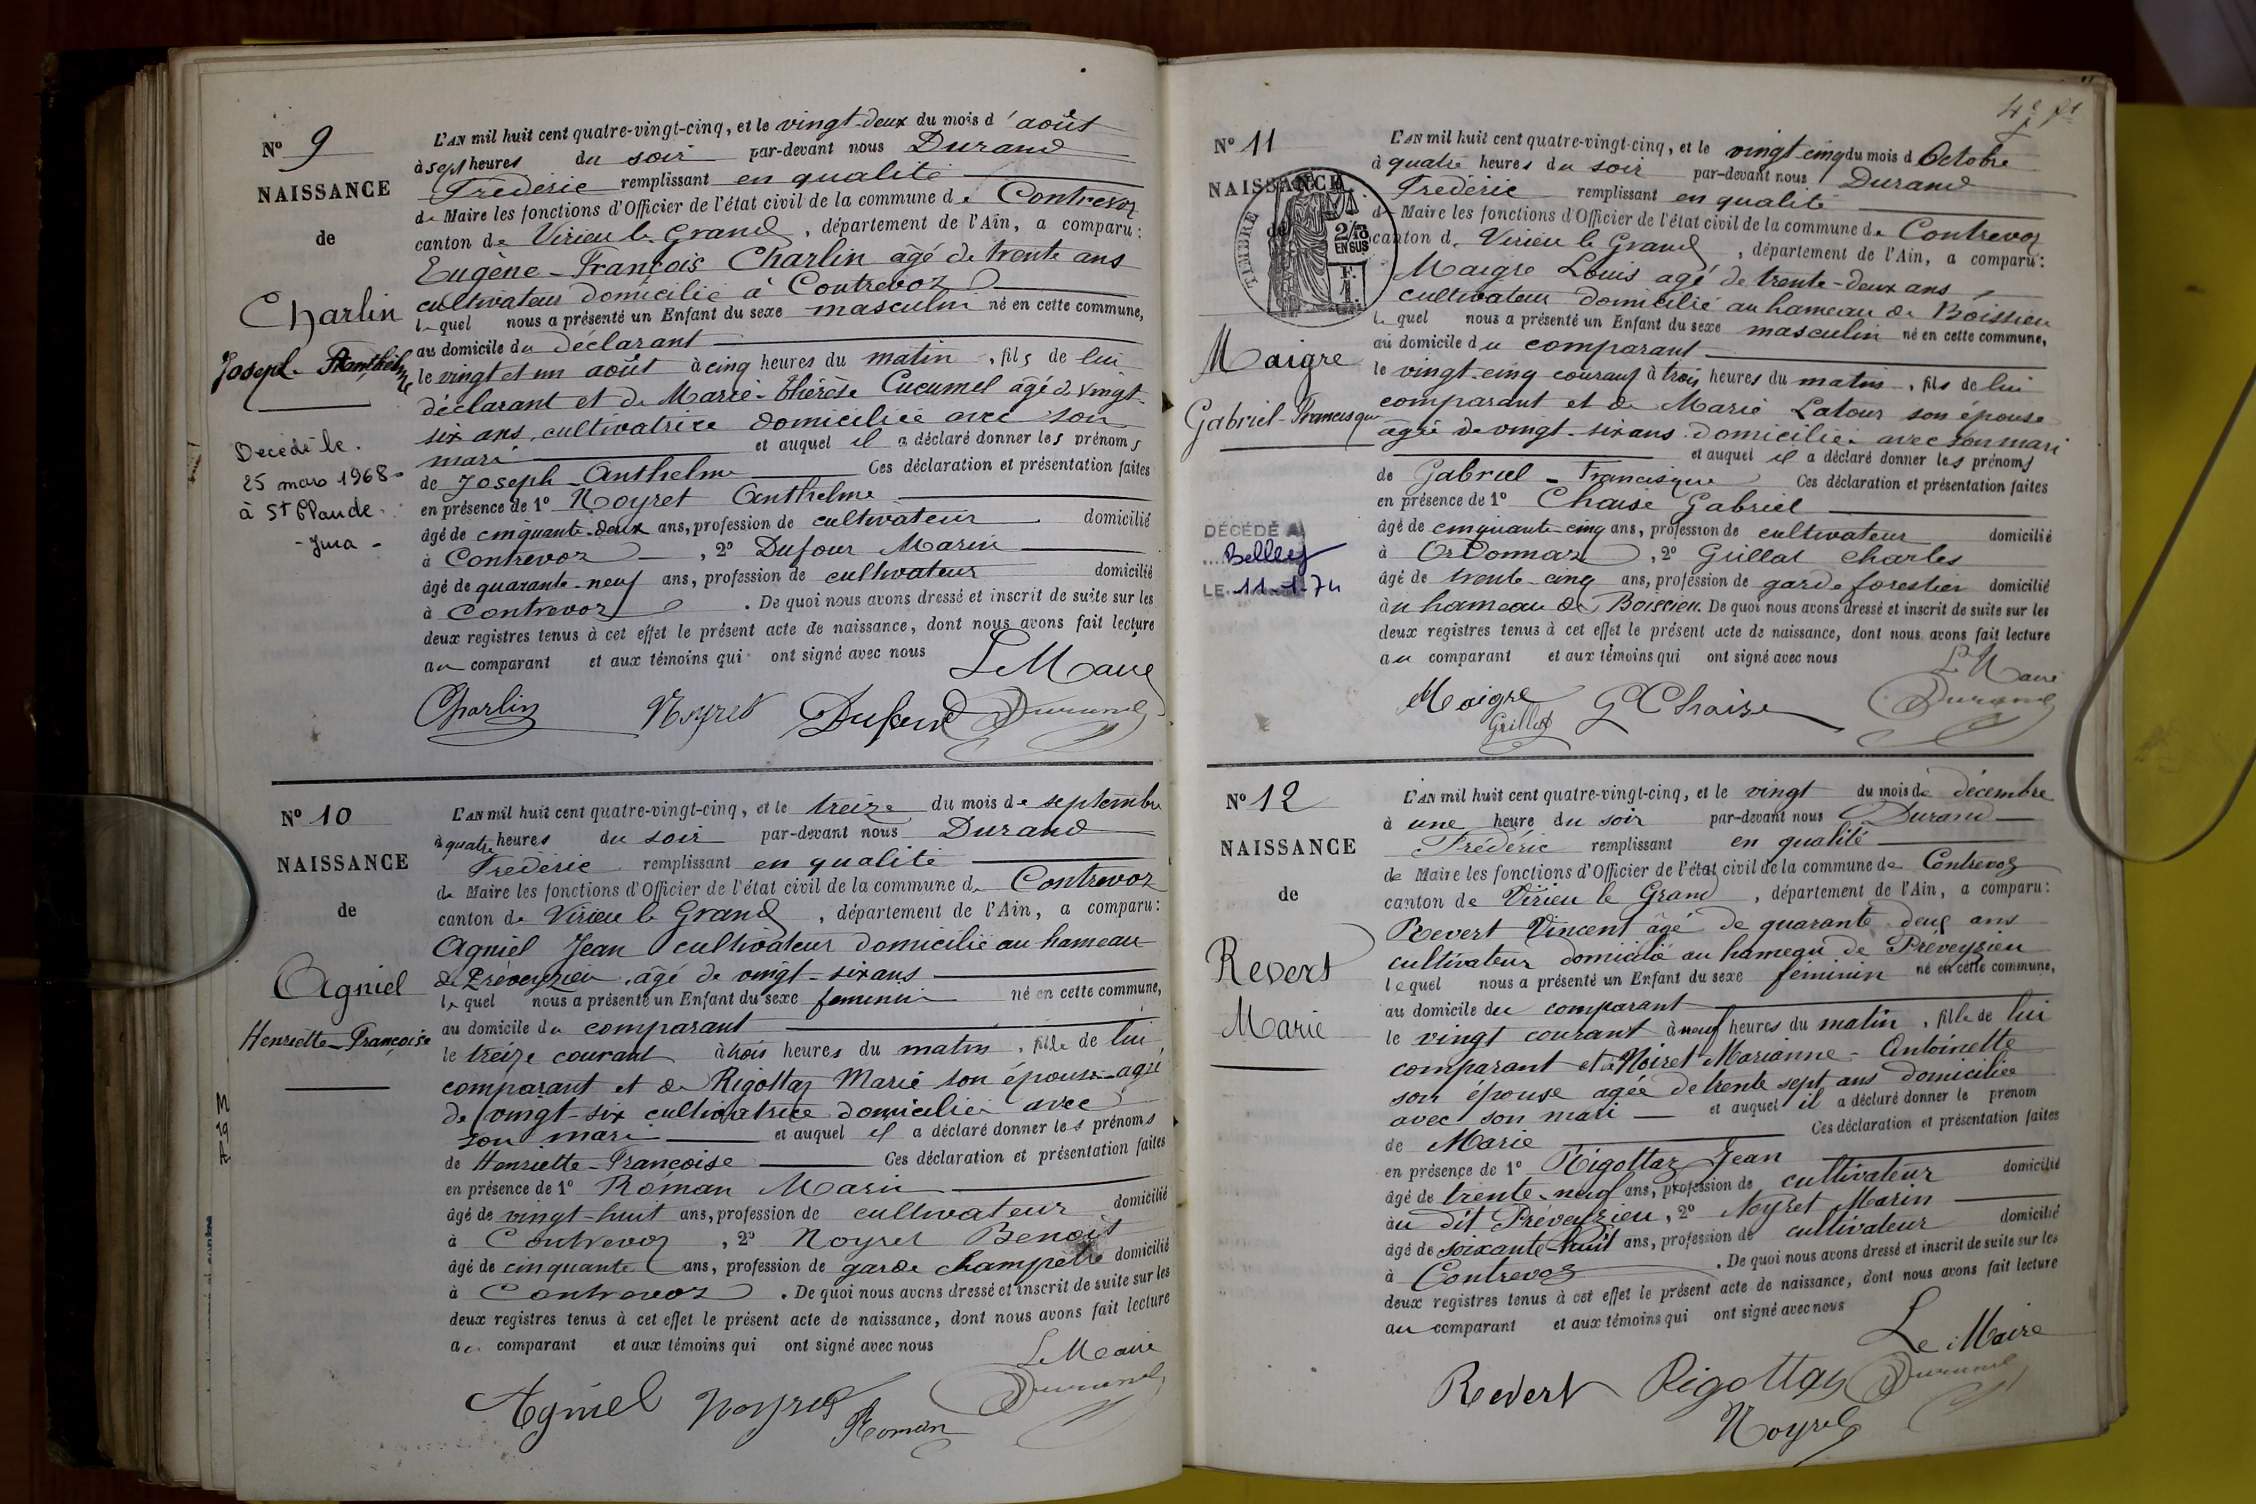 Nº 9
NAISSANCE
de
Charlin
Joseph-Anthelme
Décédé le
25 mars 1968
à St Claude
- Jura -
L'AN mil huit cent quatre-vingt-cinq, et le vingt-deux du mois d'août
à sept heures du soir par-devant nous Durand
Frédéric remplissant en qualité
de Maire les fonctions d'Officier de l'état civil de la commune de Contrevoz
canton de Virieu le Grand, département de l'Ain, a comparu:
Eugène-François Charlin agé de trente ans
cultivateur domicilié à Contrevoz
lequel nous a présenté un Enfant du sexe masculin né en cette commune,
au domicile du déclarant
le vingt et un août à cinq heures du matin, fils de lui
déclarant et de Marie-thérèse Cucumel agé de vingt-
six ans, cultivatrice domiciliée avec son
mari et auquel il a déclaré donner les prénoms
de Joseph-Anthelme Ces déclaration et présentation faites
en présence de 1º Noyret Anthelme
âgé de cinquante-deux ans, profession de cultivateur domicilié
à Contrevoz, 2º Dufour Marin
âgé de quarante-neuf ans, profession de cultivateur domicilié
à Contrevoz. De quoi nous avons dressé et inscrit de suite sur les
deux registres tenus à cet effet le présent acte de naissance, dont nous avons fait lecture
au comparant et aux témoins qui ont signé avec nous
Le Maire
Charlin Noyret Dufour Durand
Nº 10
NAISSANCE
de
Agniel
Henriette-Françoise
L'AN mil huit cent quatre-vingt-cinq, et le treize du mois de septembre
à quatre heures du soir par-devant nous Durand
Frédéric remplissant en qualité
de Maire les fonctions d'Officier de l'état civil de la commune de Contrevoz
canton de Virieu le Grand, département de l'Ain, a comparu:
Agniel Jean cultivateur domicilié au hameau
de Préveyzieu, âgé de vingt-six ans
lequel nous a présenté un Enfant du sexe feminin né en cette commune,
au domicile du comparant
le treize courant à trois heures du matin, fille de lui
comparant et de Rigottaz Marie son épouse agée
de vingt-six cultivatrice domiciliée avec
son mari et auquel il a déclaré donner les prénoms
de Henriette-Françoise Ces déclaration et présentation faites
en présence de 1º Roman Marin
âgé de vingt-huit ans, profession de cultivateur domicilié
à Contrevoz, 2º Noyret Benoit
âgé de cinquante ans, profession de garde champêtre domicilié
à Contrevoz. De quoi nous avons dressé et inscrit de suite sur les
deux registres tenus à cet effet le présent acte de naissance, dont nous avons fait lecture
au comparant et aux témoins qui ont signé avec nous
Le Maire
Agniel Noyret Durand
Roman
Nº 11
NAISSANCE
de
TIMBRE
2/10
EN SUS
F.
1
Maigre
Gabriel-Francisque
DÉCÉDÉ A
Belley
LE 11-1-74
L'AN mil huit cent quatre-vingt-cinq, et le vingt cinq du mois d Octobre
à quatre heures du soir par-devant nous Durand
Frédéric remplissant en qualité
de Maire les fonctions d'Officier de l'état civil de la commune de Contrevoz
canton de Virieu le Grand, département de l'Ain, a comparu:
Maigre Louis agé de trente-deux ans
cultivateur domicilié au hameau de Boissieu
lequel nous a présenté un Enfant du sexe masculin né en cette commune,
au domicile du comparant
le vingt-cinq courant à trois heures du matin, fils de lui
comparant et de Marie Latour son épouse
agée de vingt-six ans domiciliée avec son mari
et auquel il a déclaré donner les prénoms
de Gabriel-Francisque Ces déclaration et présentation faites
en présence de 1º Chaise Gabriel
âgé de cinquante-cinq ans, profession de cultivateur domicilié
à Ordonnaz, 2º Grillat Charles
âgé de trente-cinq ans, profession de garde forestier domicilié
au hameau de Boissieu. De quoi nous avons dressé et inscrit de suite sur les
deux registres tenus à cet effet le présent acte de naissance, dont nous avons fait lecture
au comparant et aux témoins qui ont signé avec nous
Le Maire
Maigre G Chaise Durand
Grillat
Nº 12
NAISSANCE
de
Revert
Marie
L'AN mil huit cent quatre-vingt-cinq, et le vingt du mois de décembre
à une heure du soir par-devant nous Durand
Frédéric remplissant en qualité
de Maire les fonctions d'Officier de l'état civil de la commune de Contrevoz
canton de Virieu le Grand, département de l'Ain, a comparu:
Revert Vincent âgé de quarante deux ans
cultivateur domicilié au hameau de Préveyzieu
lequel nous a présenté un Enfant du sexe féminin né en cette commune,
au domicile du comparant
le vingt courant à neuf heures du matin, fille de lui
comparant et de Noiret Marianne-Antoinette
son épouse agée de trente sept ans domiciliée
avec son mari et auquel il a déclaré donner le prénom
de Marie Ces déclaration et présentation faites
en présence de 1º Rigottaz Jean
âgé de trente-neuf ans, profession de cultivateur domicilié
au dit Préveyzieu, 2º Noyret Marin
âgé de soixante-huit ans, profession de cultivateur domicilié
à Contrevoz. De quoi nous avons dressé et inscrit de suite sur les
deux registres tenus à cet effet le présent acte de naissance, dont nous avons fait lecture
au comparant et aux témoins qui ont signé avec nous
Le Maire
Revert Rigottaz Durand
Noyret